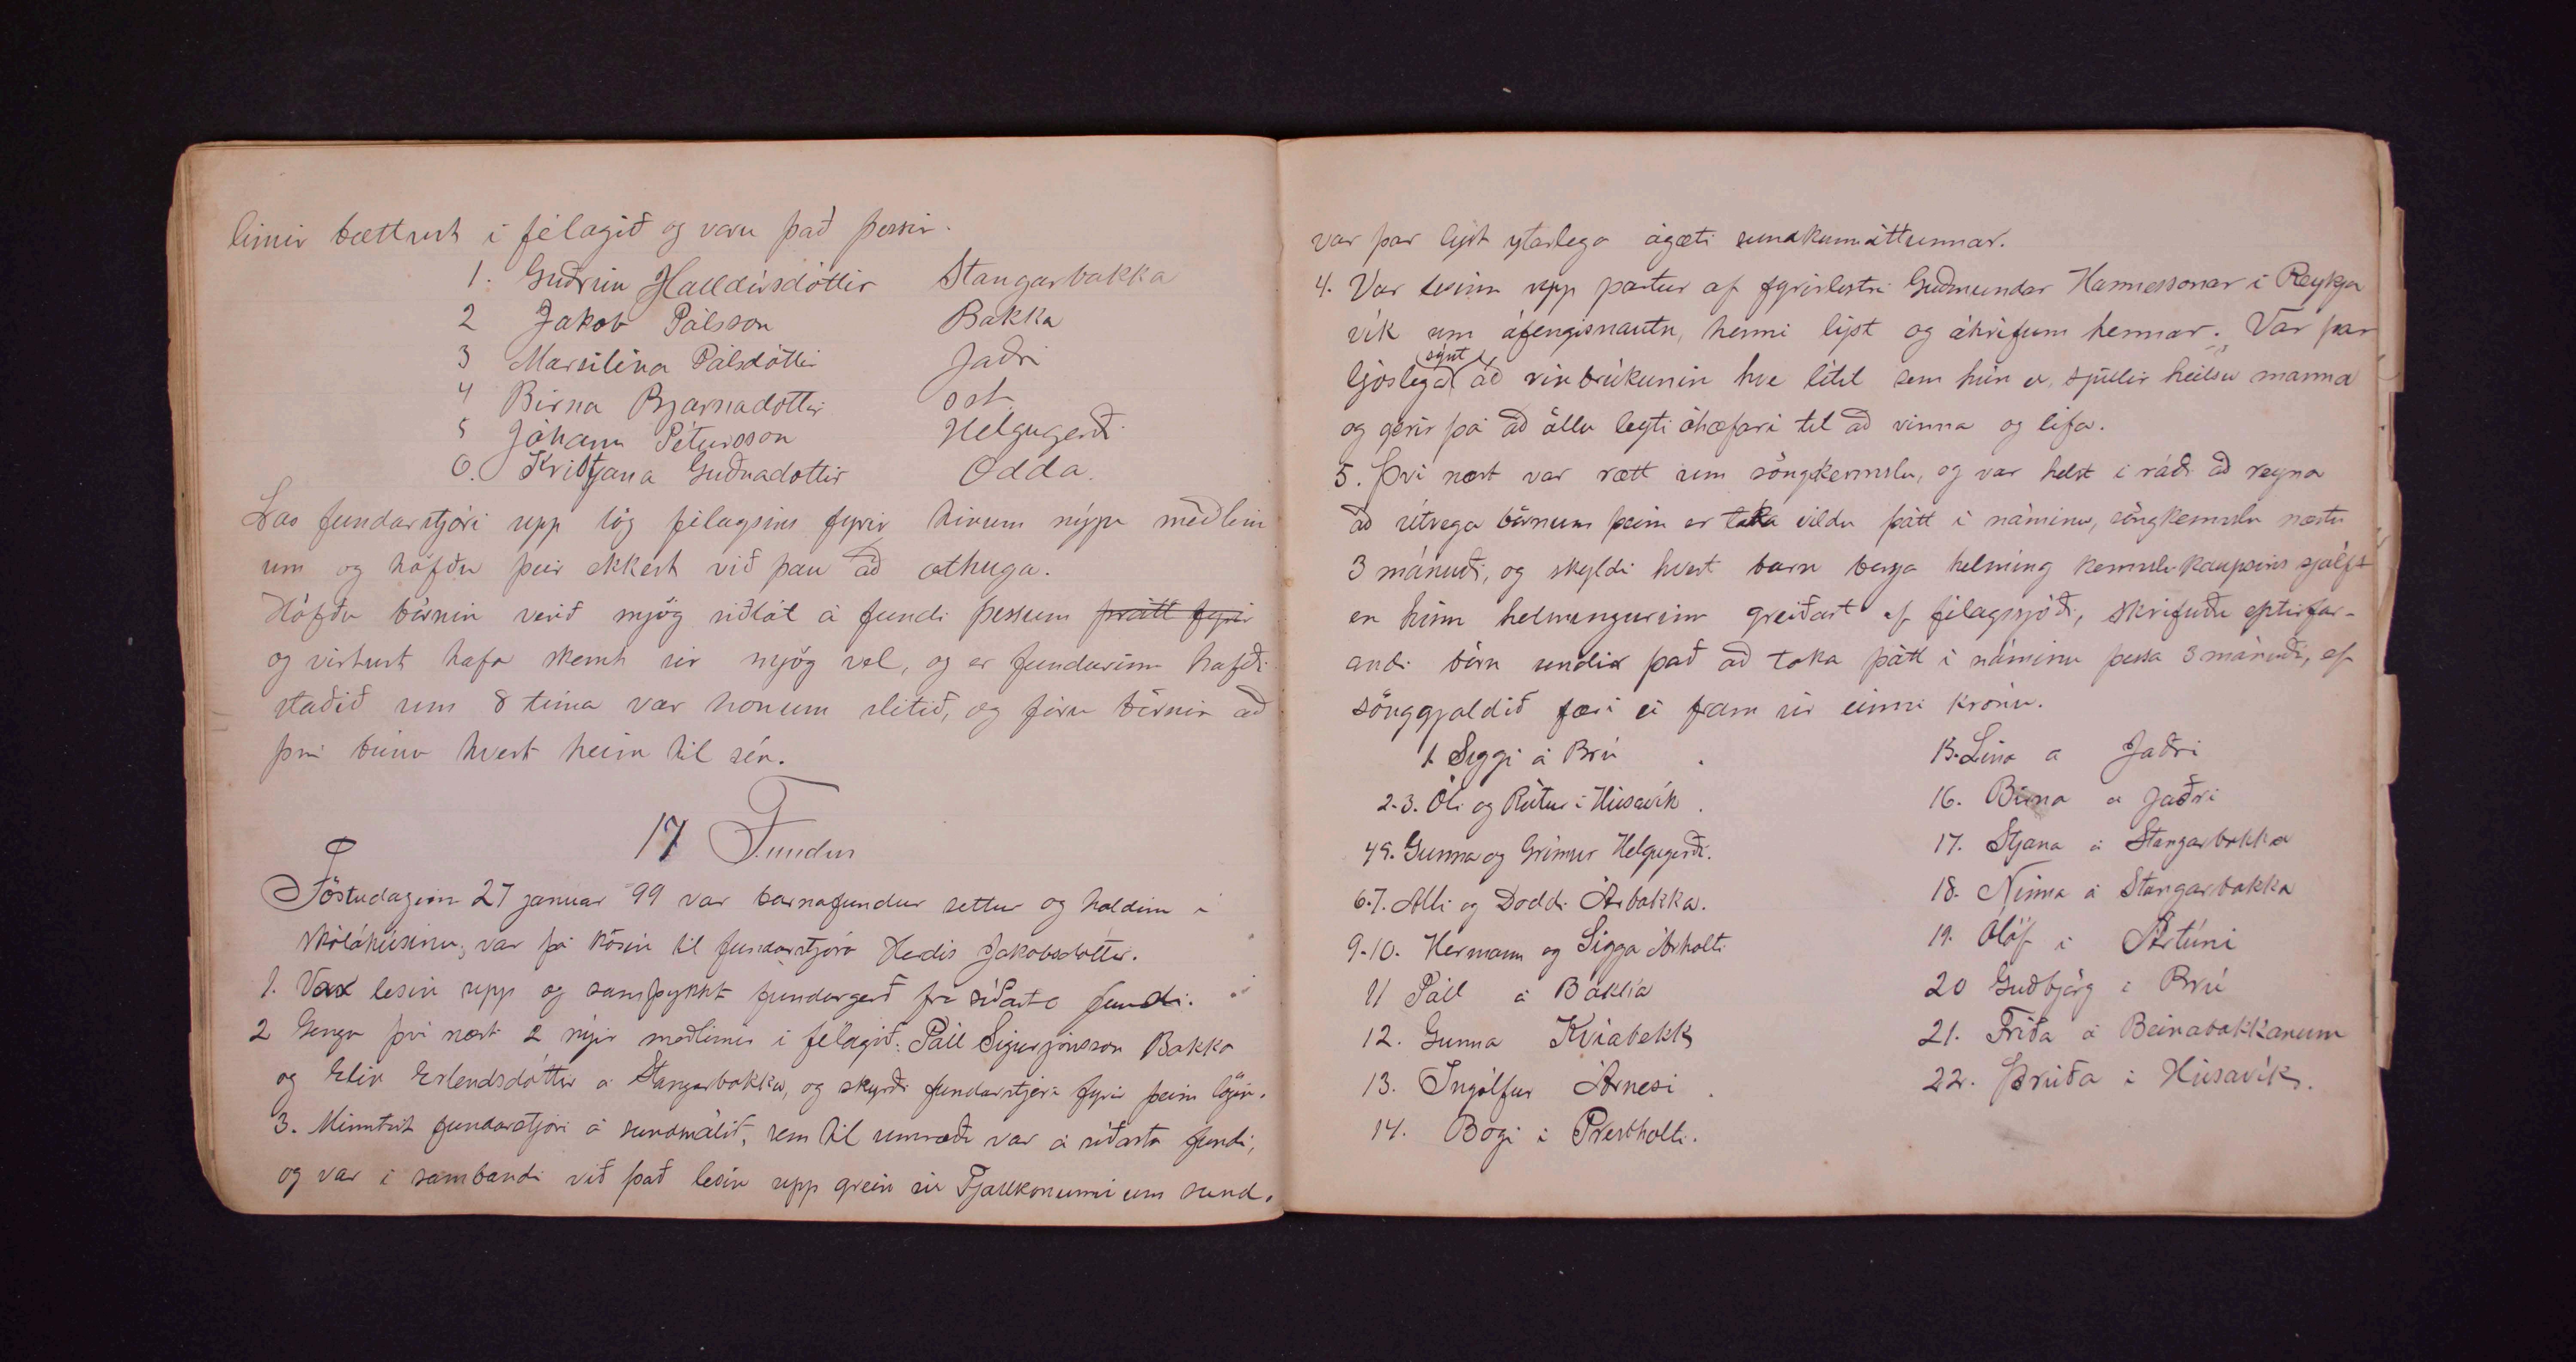 limir bættust í félagið og voru það þessir.
1. Guðrún Halldórsdóttir Stangarbakka
2 Jakob Pálsson Bakka
3 Marsilína Pálsdóttir Jaðri
4 Birna Bjarnadóttir sst.
5 Jóhann Pétursson Helgugerði
6. Kristjana Guðnadottir Odda.
Las fundarstjóri upp lög félagsins fyrir hinum nýju meðlim
um og höfðu þeir ekkert við þau að athuga.
Höfðu börnin verið mjög siðlát á fundi þessum þrátt fyrir
og virtust hafa skemt sér mjög vel, og er fundurinn hafði
staðið um 8 tíma var honum slitið, og fóru börnin að
því búnu hvert heim til sín.
17 Fundur
Föstudaginn 27 januar 99 var barnafundur settur og haldinn í
skólahúsinu, var þá kosin til fundarstjóra Herdís Jakobsdóttir.
1. Var lesin upp og samþykkt fundargerð frá síðasta fundi.
2 Gengu því næst 2 nýjir meðlimir í félagið: Páll Sigurjónsson Bakka
og Elín Erlendsdóttir á Stangarbakka, og skyrði fundarstjóri fyrir þeim lögin.
3. Minntist fundarstjóri á sundmálið, sem til umræðu var á síðasta fundi,
og var í sambandi við það lesin upp grein úr Fjallkonunni um sund,
var þar lýst ytarlega ágæti sundkunnáttunnar.
4. Var lesinn upp partur af fyrirlestri Guðmundar Hannessonar í Reykja
vík um áfengisnautn, henni lýst og áhrifum hennar. Var þar
ljóslega sýnt að vínbrúkunin hve lítil sem hún er, spillir heilsu manna
og gerir þá að öllu leyti óhæfari til að vinna og lifa.
5. Því næst var rætt um söngkennslu, og var helst í ráði að reyna
að útvega börnum þeim er taka vildu þátt í náminu, söngkennslu næstu
3 mánuði, og skyldi hvert barn borga helming kennslukaupsins sjálft
en hinn helmingurinn greiðast af félagssjóði, skrifuðu eptirfar-
andi börn undir það að taka þátt í náminu þessa 3 mánuði, ef
sönggjaldið færi ei fram úr einni krónu.
1. Siggi á Brú
2-3. Óli og Rútur í Húsavík.
4 5. Gunna og Grímur Helgugerði.
6-7. Alli og Doddi Árbakka.
9-10. Hermann og Sigga Árholti
11 Páll á Bakka
12. Gunna Kvíabekk
13. Ingólfur Árnesi
14. Bogi í Prestholti.
15. Lína á Jaðri
16. Birna á Jaðri
17. Stjana á Stangarbakka
18. Ninna á Stangarbakka
19. Ólöf í Ártúni
20 Guðbjörg í Brú
21. Fríða á Beinabakkanum
22. Þrúða í Húsavík.